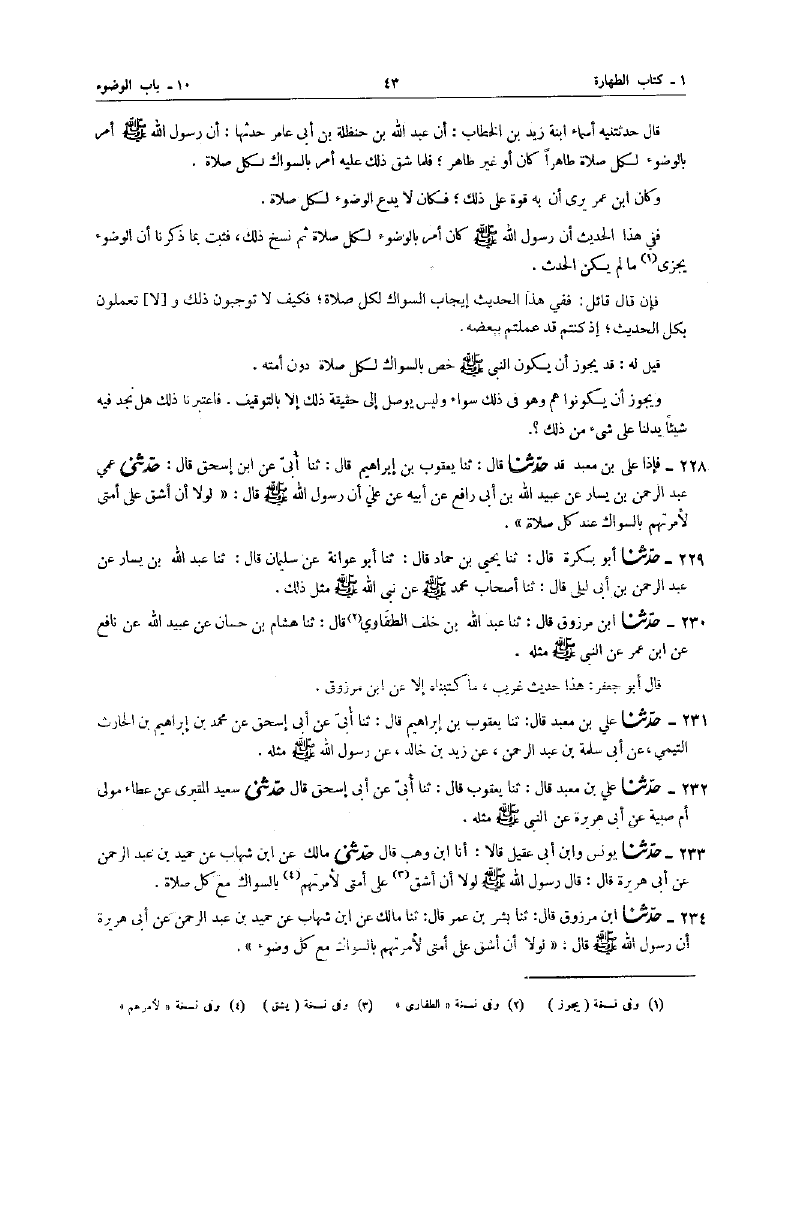 ١ - كتاب الطهارة ٤٣ ١٠ - باب الوضوء
قال حدثتنيه أسماء ابنة زيد بن الخطاب : أن عبد الله بن حنظلة بن أبى عامر حدثها : أن رسول الله ﷺ أمر
بالوضوء لكل صلاة طاهراً كان أو غير طاهر ؛ فلما شق ذلك عليه أمر بالسواك لكل صلاة .
وكان ابن عمر يرى أن به قوة على ذلك ؛ فكان لا يدع الوضوء لكل صلاة .
ففى هذا الحديث أن رسول الله ﷺ كان أمر بالوضوء لكل صلاة ثم نسخ ذلك ، فثبت بما ذكرنا أن الوضوء
يجزى(١) ما لم يكن الحدث .
فإن قال قائل: ففي هذا الحديث إيجاب السواك لكل صلاة؛ فكيف لا توجبون ذلك و [لا] تعملون
بكل الحديث؛ إذ كنتم قد عملتم ببعضه.
قيل له : قد يجوز أن يكون النبي ﷺ خص بالسواك لكل صلاة دون أمته .
ويجوز أن يكونوا هم وهو فى ذلك سواء وليس يوصل إلى حقيقة ذلك إلا بالتوقيف . فاعتبرنا ذلك هل نجد فيه
شيئاً يدلنا على شىء من ذلك ؟.
٢٢٨ - فإذا على بن معبد قد حدثنا قال : ثنا يعقوب بن إبراهيم قال : ثنا أُبىّ عن ابن إسحق قال : حدّثنى عمي
عبد الرحمن بن يسار عن عبيد الله بن أبى رافع عن أبيه عن علي أن رسول الله ﷺ قال : « لولا أن أشق على أمتى
لأمرتهم بالسواك عند كل صلاة » .
٢٢٩ - حدّثنا أبو بكرة قال : ثنا يحيى بن حماد قال : ثنا أبو عوانة عن سليمان قال : ثنا عبد الله بن يسار عن
عبد الرحمن بن أبى ليلى قال : ثنا أصحاب محمد ﷺ عن نبي الله ﷺ مثل ذلك .
٢٣٠ - حدّثنا ابن مرزوق قال : ثنا عبد الله بن خلف الطفاوي(٢)قال : ثنا هشام بن حسان عن عبيد الله عن نافع
عن ابن عمر عن النبى ﷺ مثله .
قال أبو جعفر: هذا حديث غريب ، ما كتبناه إلا عن ابن مرزوق .
٢٣١ - حدّثنا علي بن معبد قال: ثنا يعقوب بن إبراهيم قال : ثنا أُبىّ عن أبى إسحق عن محمد بن إبراهيم بن الحارث
التيمي ، عن أبى سلمة بن عبد الرحمن ، عن زيد بن خالد ، عن رسول الله ﷺ مثله .
٢٣٢ - حدّثنا علي بن معبد قال : ثنا يعقوب قال : ثنا أُبىّ عن أبى إسحق قال حدّثنى سعيد المقبرى عن عطاء مولى
أم صبية عن أبى هريرة عن النبى ﷺ مثله .
٢٣٣ - حدّثنا يونس وابن أبى عقيل قالا : أنا ابن وهب قال حدّثنى مالك عن ابن شهاب عن حميد بن عبد الرحمن
عن أبى هريرة قال : قال رسول الله ﷺ لولا أن أشق(٣) على أمتى لأمرتهم(٤) بالسواك مع كل صلاة .
٢٣٤ - حدّثنا ابن مرزوق قال: ثنا بشر بن عمر قال: ثنا مالك عن ابن شهاب عن حميد بن عبد الرحمن عن أبى هريرة
أن رسول الله ﷺ قال : « لولا أن أشق على أمتى لأمرتهم بالسواك مع كل وضوء » .
(١) وفى نسخة ( يجوز ) (٢) وفى نسخة « الطفارى » (٣) وفى نسخة ( يشق ) (٤) وفى نسخة « لأمرهم »